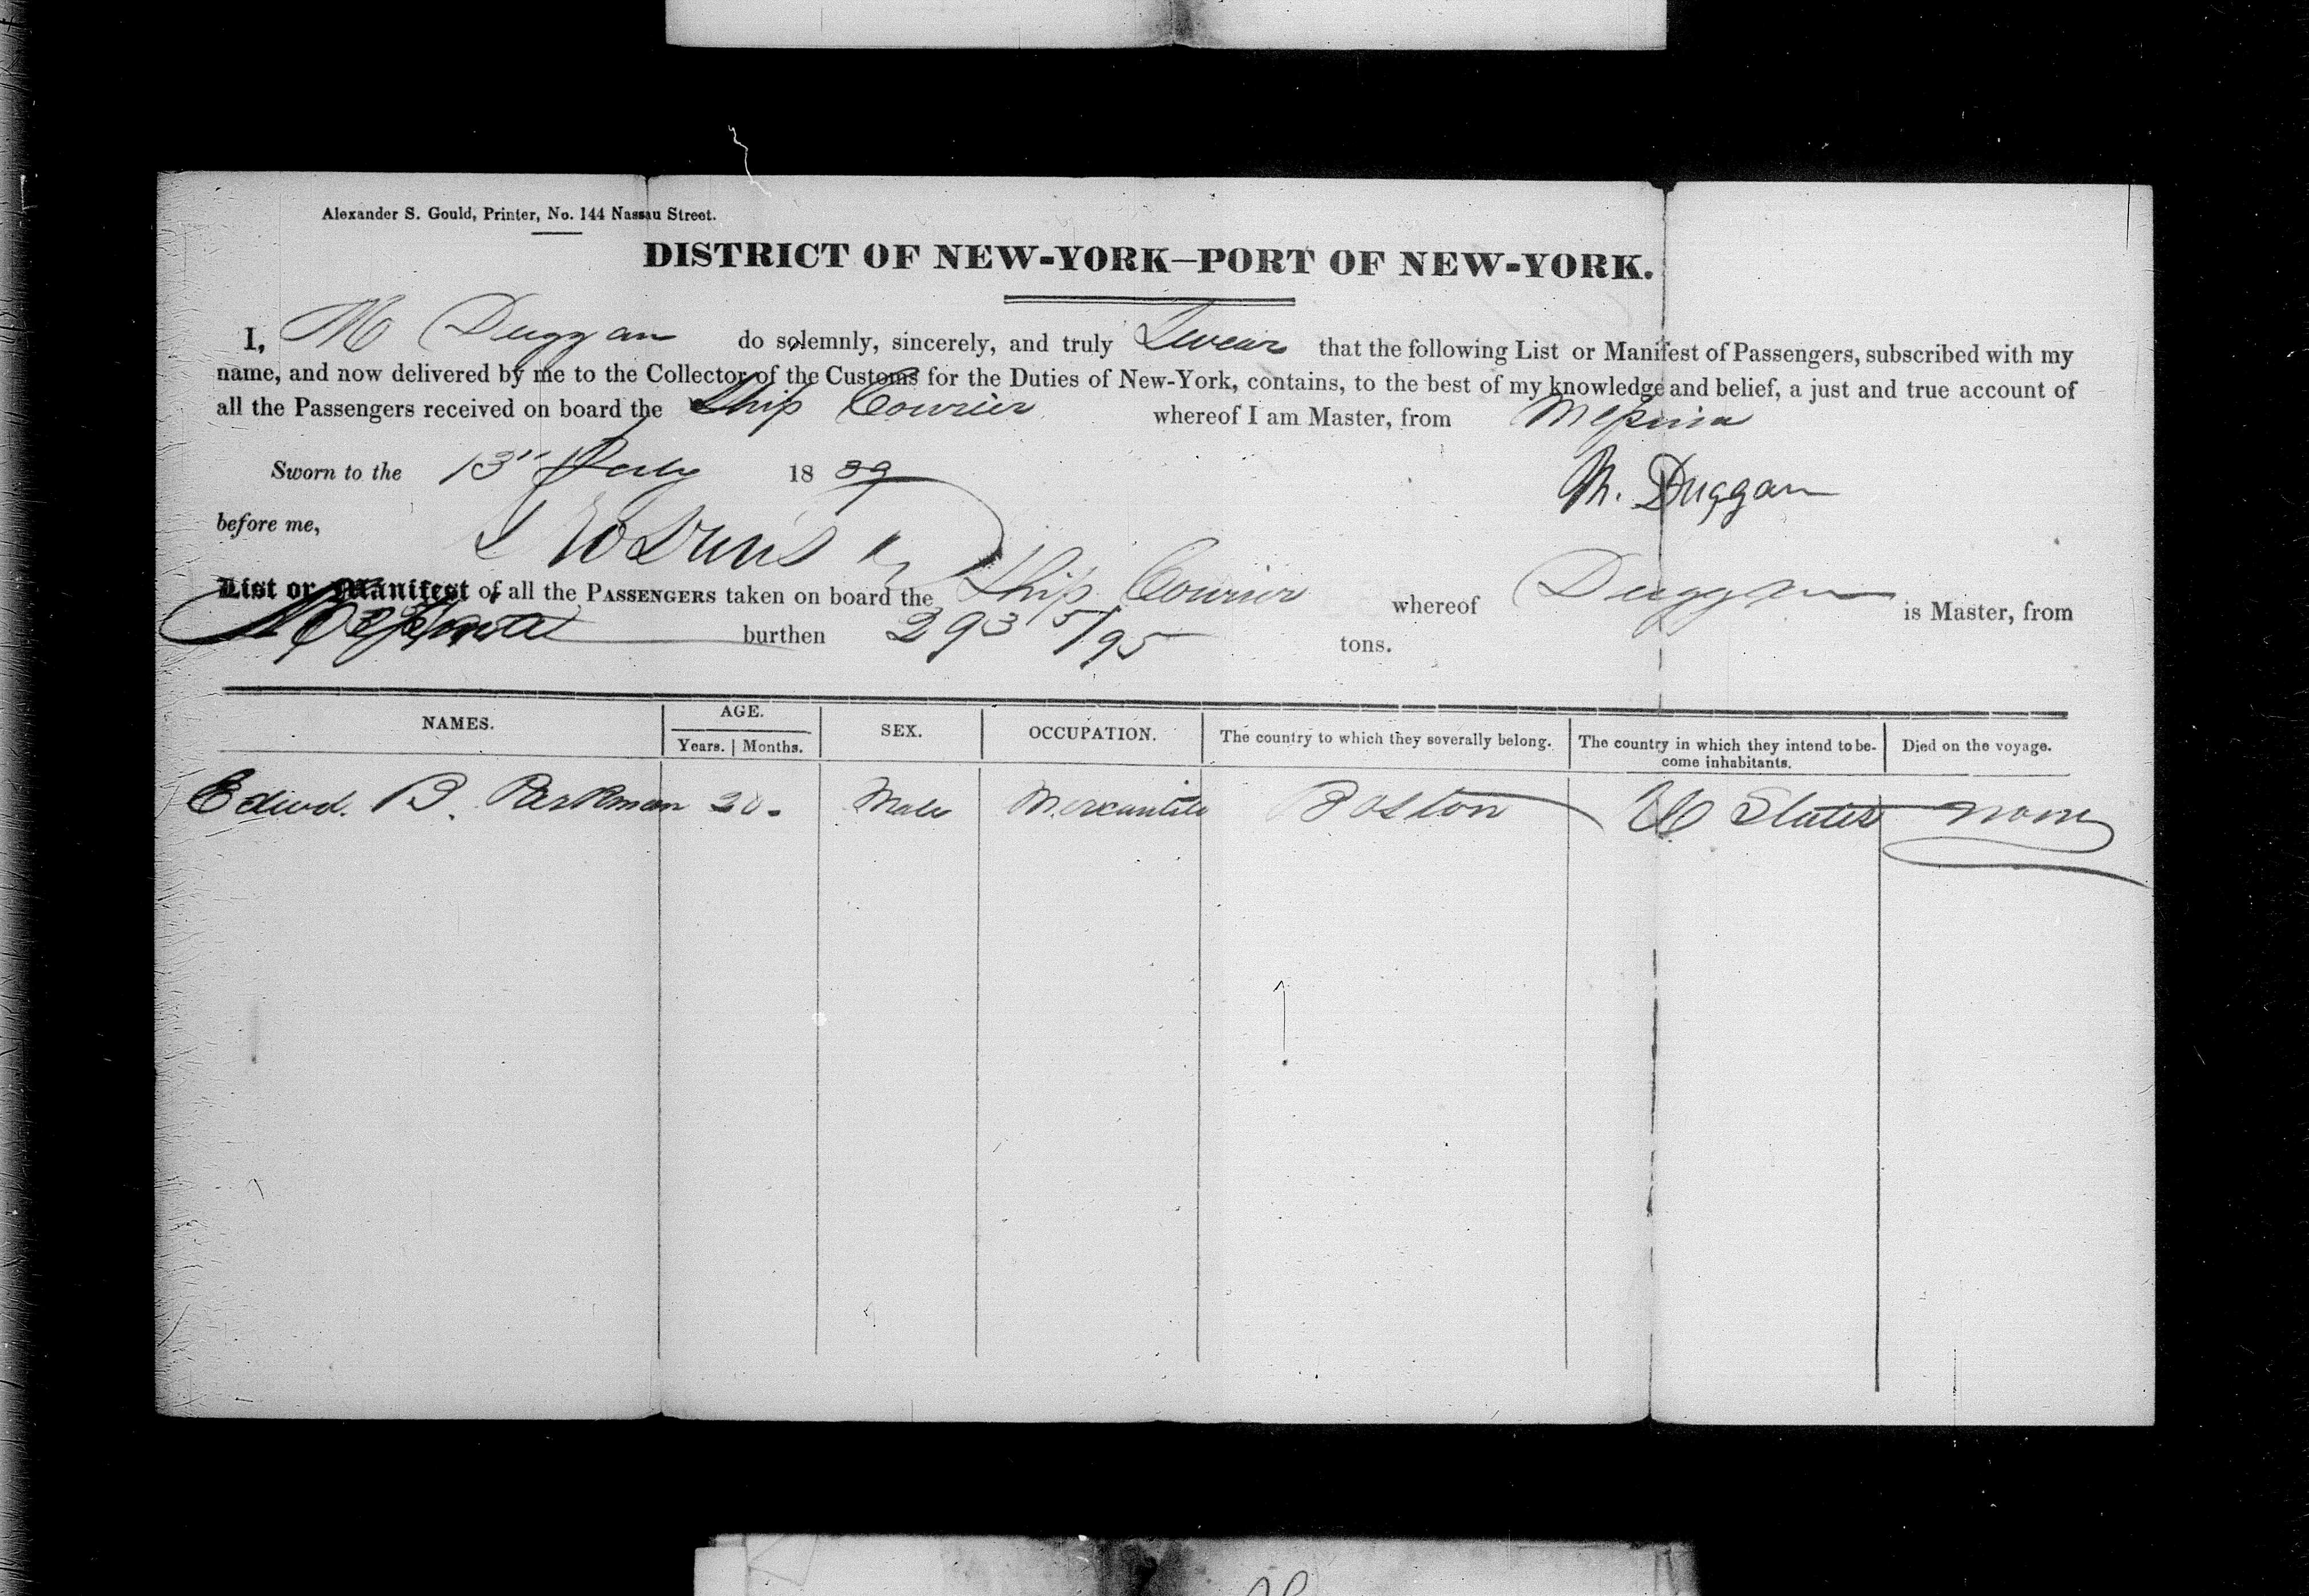 Alexander S. Gould, Printer, No. 144 Nassau Street.
DISTRICT OF NEW-YORK—PORT OF NEW-YORK.
I, M Duggan do solemnly, sincerely, and truly Swear that the following List or Manifest of Passengers, subscribed with my
name, and now delivered by me to the Collector of the Customs for the Duties of New-York, contains, to the best of my knowledge and belief, a just and true account of
all the Passengers received on board the Ship Courier whereof I am Master, from Messina
Sworn to the 13" July 18 39 M. Duggan
before me,
List or Manifest of all the PASSENGERS taken on board the Ship Courier whereof Duggan is Master, from
Messina burthen 293 5/95 tons.
NAMES. AGE. SEX. OCCUPATION. The country to which they severally belong. The country in which they intend to be- Died on the voyage.
Years. Months. come inhabitants.
Edwd. B. Parkman 20. Male Mercantile Boston U States None